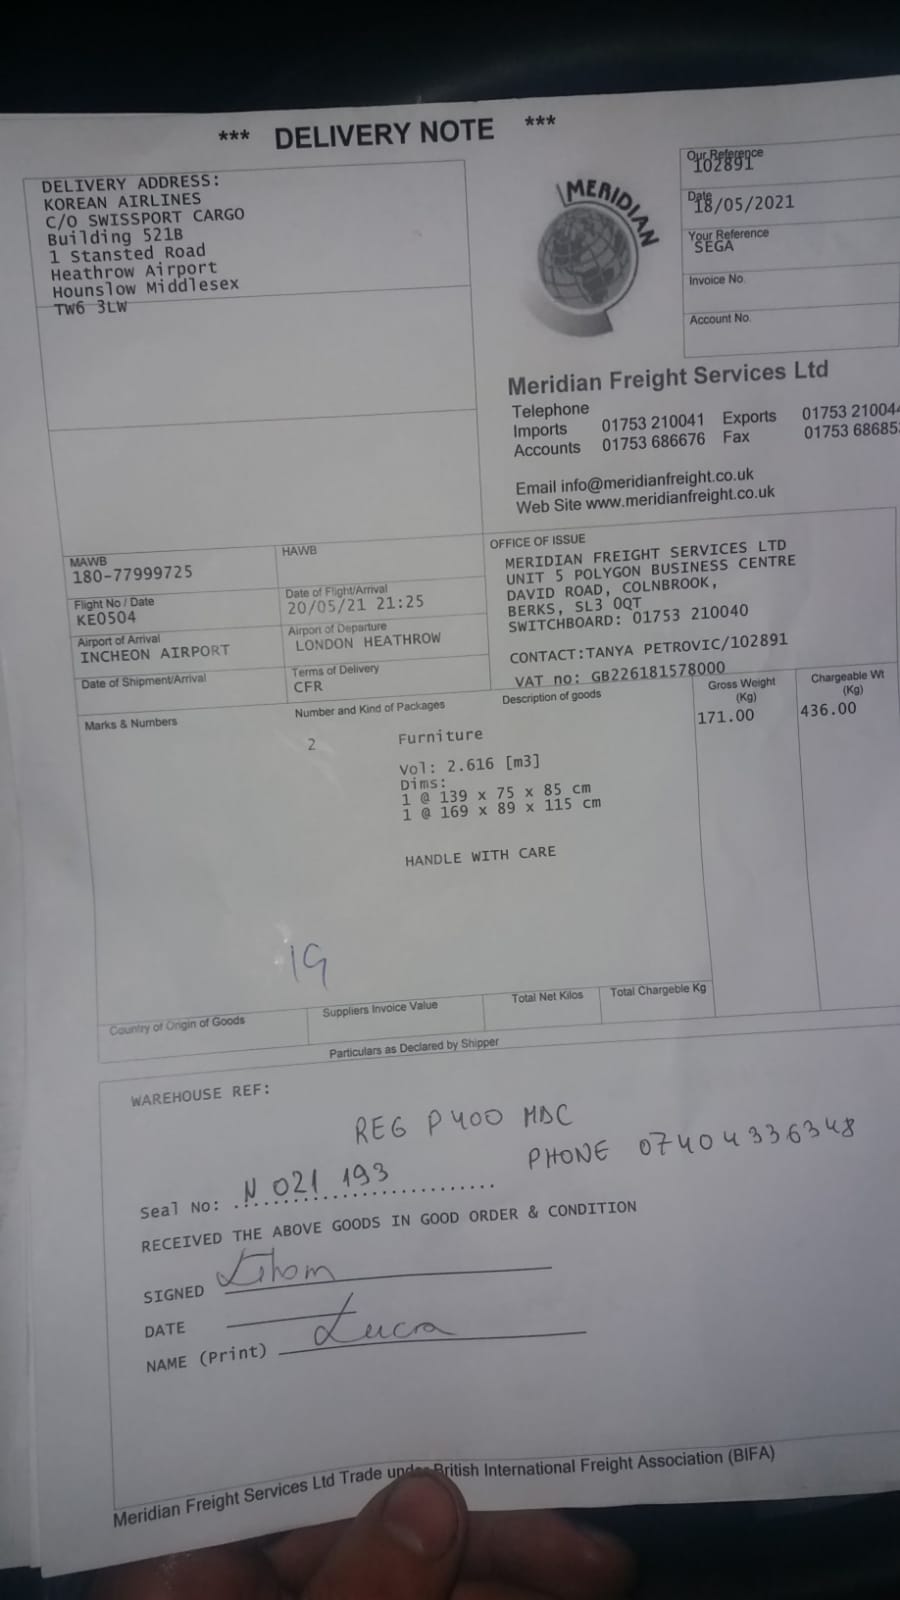 *** DELIVERY NOTE ***
DELIVERY ADDRESS:
KOREAN AIRLINES
C/O SWISSPORT CARGO
Building 521B
1 Stansted Road
Heathrow Airport
Hounslow Middlesex
TW6 3LW
MERIDIAN
Our Reference
102891
Date
18/05/2021
Your Reference
SEGA
Invoice No.
Account No.
Meridian Freight Services Ltd
Telephone
Imports 01753 210041 Exports 01753 21004
Accounts 01753 686676 Fax 01753 68685
Email info@meridianfreight.co.uk
Web Site www.meridianfreight.co.uk
MAWB
180-77999725
HAWB
Flight No / Date
KE0504
Date of Flight/Arrival
20/05/21 21:25
Airport of Arrival
INCHEON AIRPORT
Airport of Departure
LONDON HEATHROW
Date of Shipment/Arrival
Terms of Delivery
CFR
OFFICE OF ISSUE
MERIDIAN FREIGHT SERVICES LTD
UNIT 5 POLYGON BUSINESS CENTRE
DAVID ROAD, COLNBROOK,
BERKS, SL3 0QT
SWITCHBOARD: 01753 210040
CONTACT:TANYA PETROVIC/102891
VAT no: GB226181578000
Marks & Numbers
Number and Kind of Packages
Description of goods
Gross Weight (Kg)
Chargeable Wt (Kg)
2 Furniture
171.00
436.00
Vol: 2.616 [m3]
Dims:
1 @ 139 x 75 x 85 cm
1 @ 169 x 89 x 115 cm
HANDLE WITH CARE
Country of Origin of Goods
Suppliers Invoice Value
Total Net Kilos
Total Chargeble Kg
Particulars as Declared by Shipper
WAREHOUSE REF:
REG P400 MDC
Seal No: N 021 193
PHONE 07404336348
RECEIVED THE ABOVE GOODS IN GOOD ORDER & CONDITION
SIGNED
DATE
NAME (Print) Luca
Meridian Freight Services Ltd Trade under British International Freight Association (BIFA)